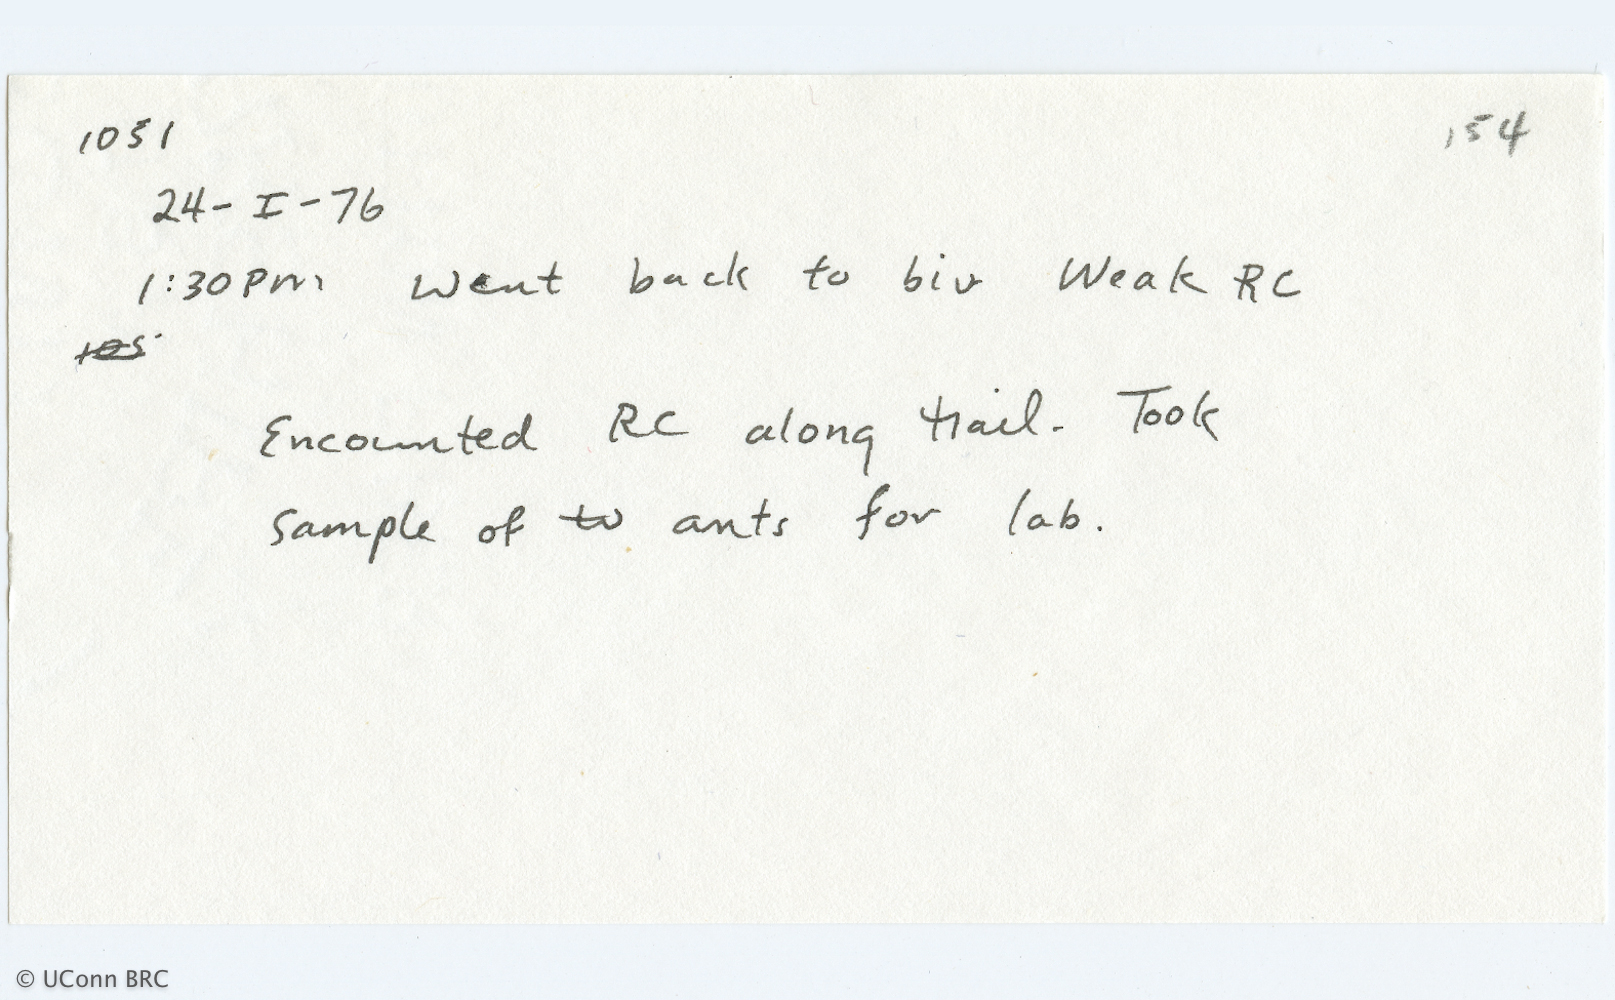 1051 154
24-I-76
1:30 Pm Went back to biv Weak RC
105
Encounted RC along trail. Took
sample of to ants for lab.
© UConn BRC